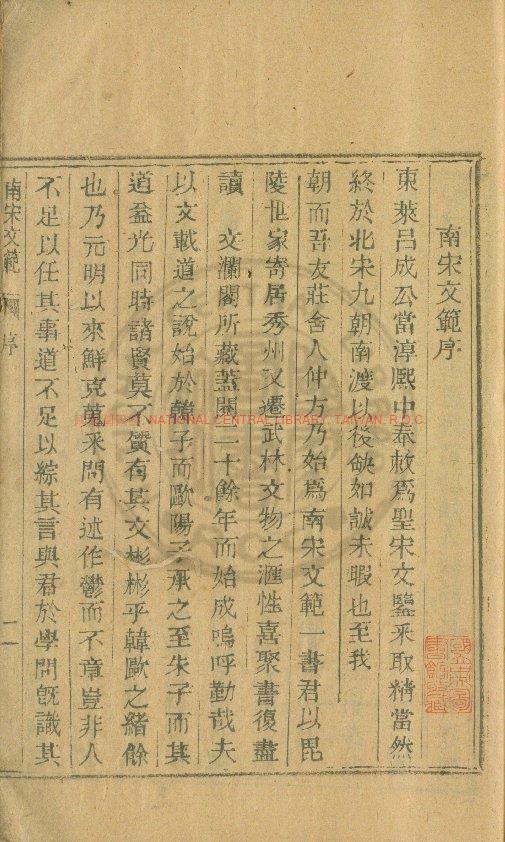 南宋文範序
東萊呂成公當淳熙中奉敕爲聖宋文鑒采取精當然
終於北宋九朝南渡以後缺如誠未暇也至我
朝而吾友莊舍人仲方乃始爲南宋文範一書君以毘
陵世家寄居秀州又遷武林文物之滙性喜聚書復盡
讀 文瀾閣所藏蓋閱二十餘年而始成嗚呼勤哉夫
以文載道之說始於韓子而歐陽子承之至朱子而其
道益光同時諸賢莫不質有其文彬彬乎韓歐之緒餘
也乃元明以來鮮克萬釆問有述作鬱而不章豈非人
不足以任其事道不足以綜其言與君於學問旣識其
南宋文範 序 二
NATIONAL CENTRAL LIBRARY, TAIWAN, R.O.C